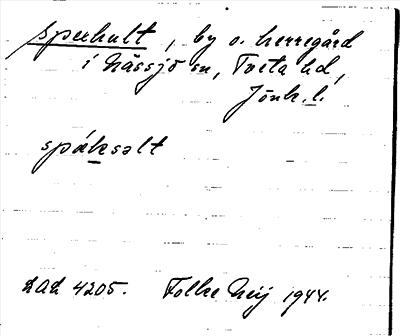 Spexhult, by o. herregård
i Nässjö sn, Tveta hd,
Jönk. l.
spǽksəlt
LAL 4205. Folke Neij 1944.